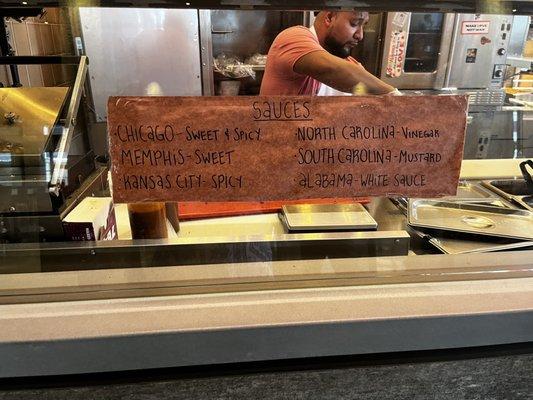 SAUCES
CHICAGO - SWEET & SPICY
MEMPHIS - SWEET
KANSAS CITY - SPICY
NORTH CAROLINA - VINEGAR
SOUTH CAROLINA - MUSTARD
ALABAMA - WHITE SAUCE